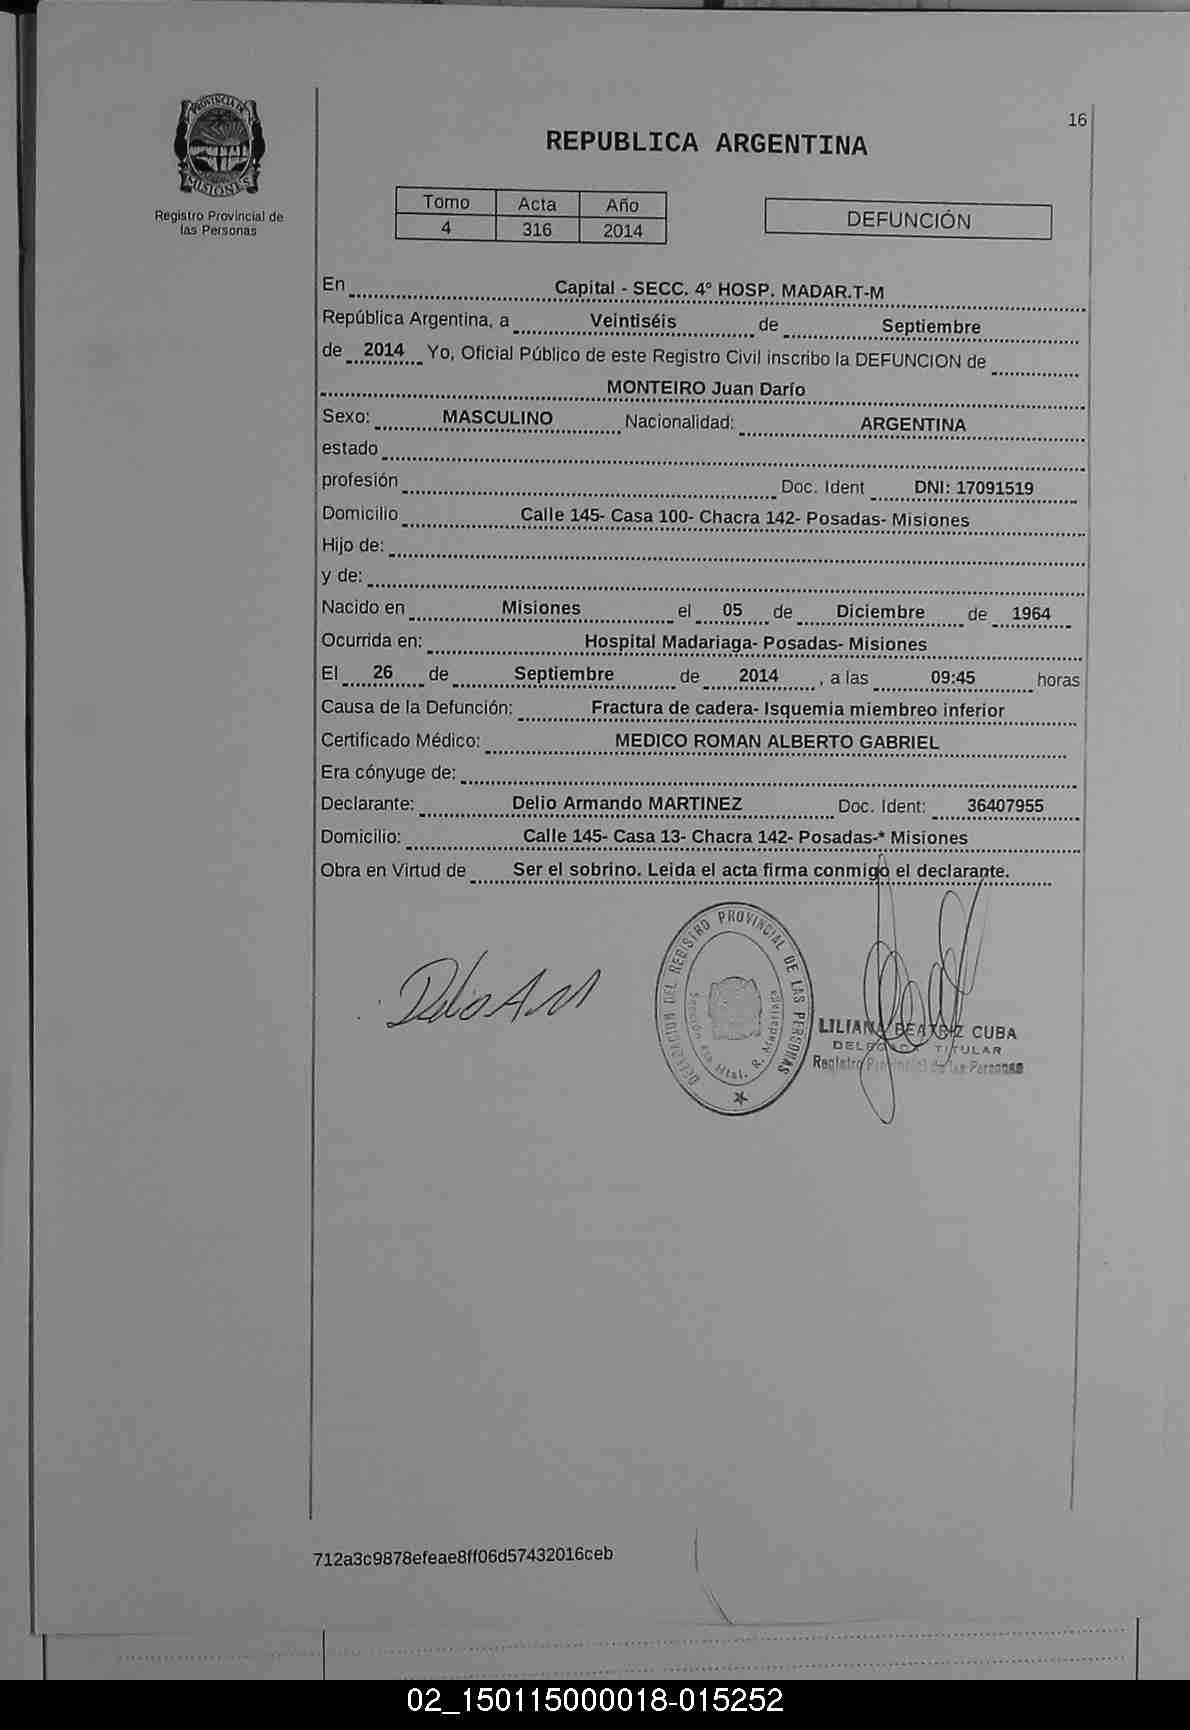 16
REPUBLICA ARGENTINA
PROVINCIA DE
MISIONES
Registro Provincial de
las Personas
Tomo Acta Año
4 316 2014
DEFUNCIÓN
En Capital - SECC. 4° HOSP. MADAR.T-M
República Argentina, a Veintiséis de Septiembre
de 2014 Yo, Oficial Público de este Registro Civil inscribo la DEFUNCION de
MONTEIRO Juan Darío
Sexo: MASCULINO Nacionalidad: ARGENTINA
estado
profesión Doc. Ident DNI: 17091519
Domicilio Calle 145- Casa 100- Chacra 142- Posadas- Misiones
Hijo de:
y de:
Nacido en Misiones el 05 de Diciembre de 1964
Ocurrida en: Hospital Madariaga- Posadas- Misiones
El 26 de Septiembre de 2014 , a las 09:45 horas
Causa de la Defunción: Fractura de cadera- Isquemia miembreo inferior
Certificado Médico: MEDICO ROMAN ALBERTO GABRIEL
Era cónyuge de:
Declarante: Delio Armando MARTINEZ Doc. Ident: 36407955
Domicilio: Calle 145- Casa 13- Chacra 142- Posadas-* Misiones
Obra en Virtud de Ser el sobrino. Leida el acta firma conmigo el declarante.
Delio A M
DELEGACION DEL REGISTRO PROVINCIAL DE LAS PERSONAS
Sección 4ta Htal. R. Madariaga
LILIANA BEATRIZ CUBA
DELEGADA TITULAR
Registro Provincial de las Personas
712a3c9878efeae8ff06d57432016ceb
02_150115000018-015252